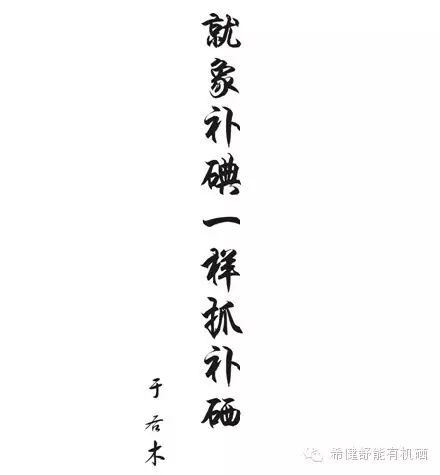 就象补碘一样抓补硒
于若木
希健舒能有机硒